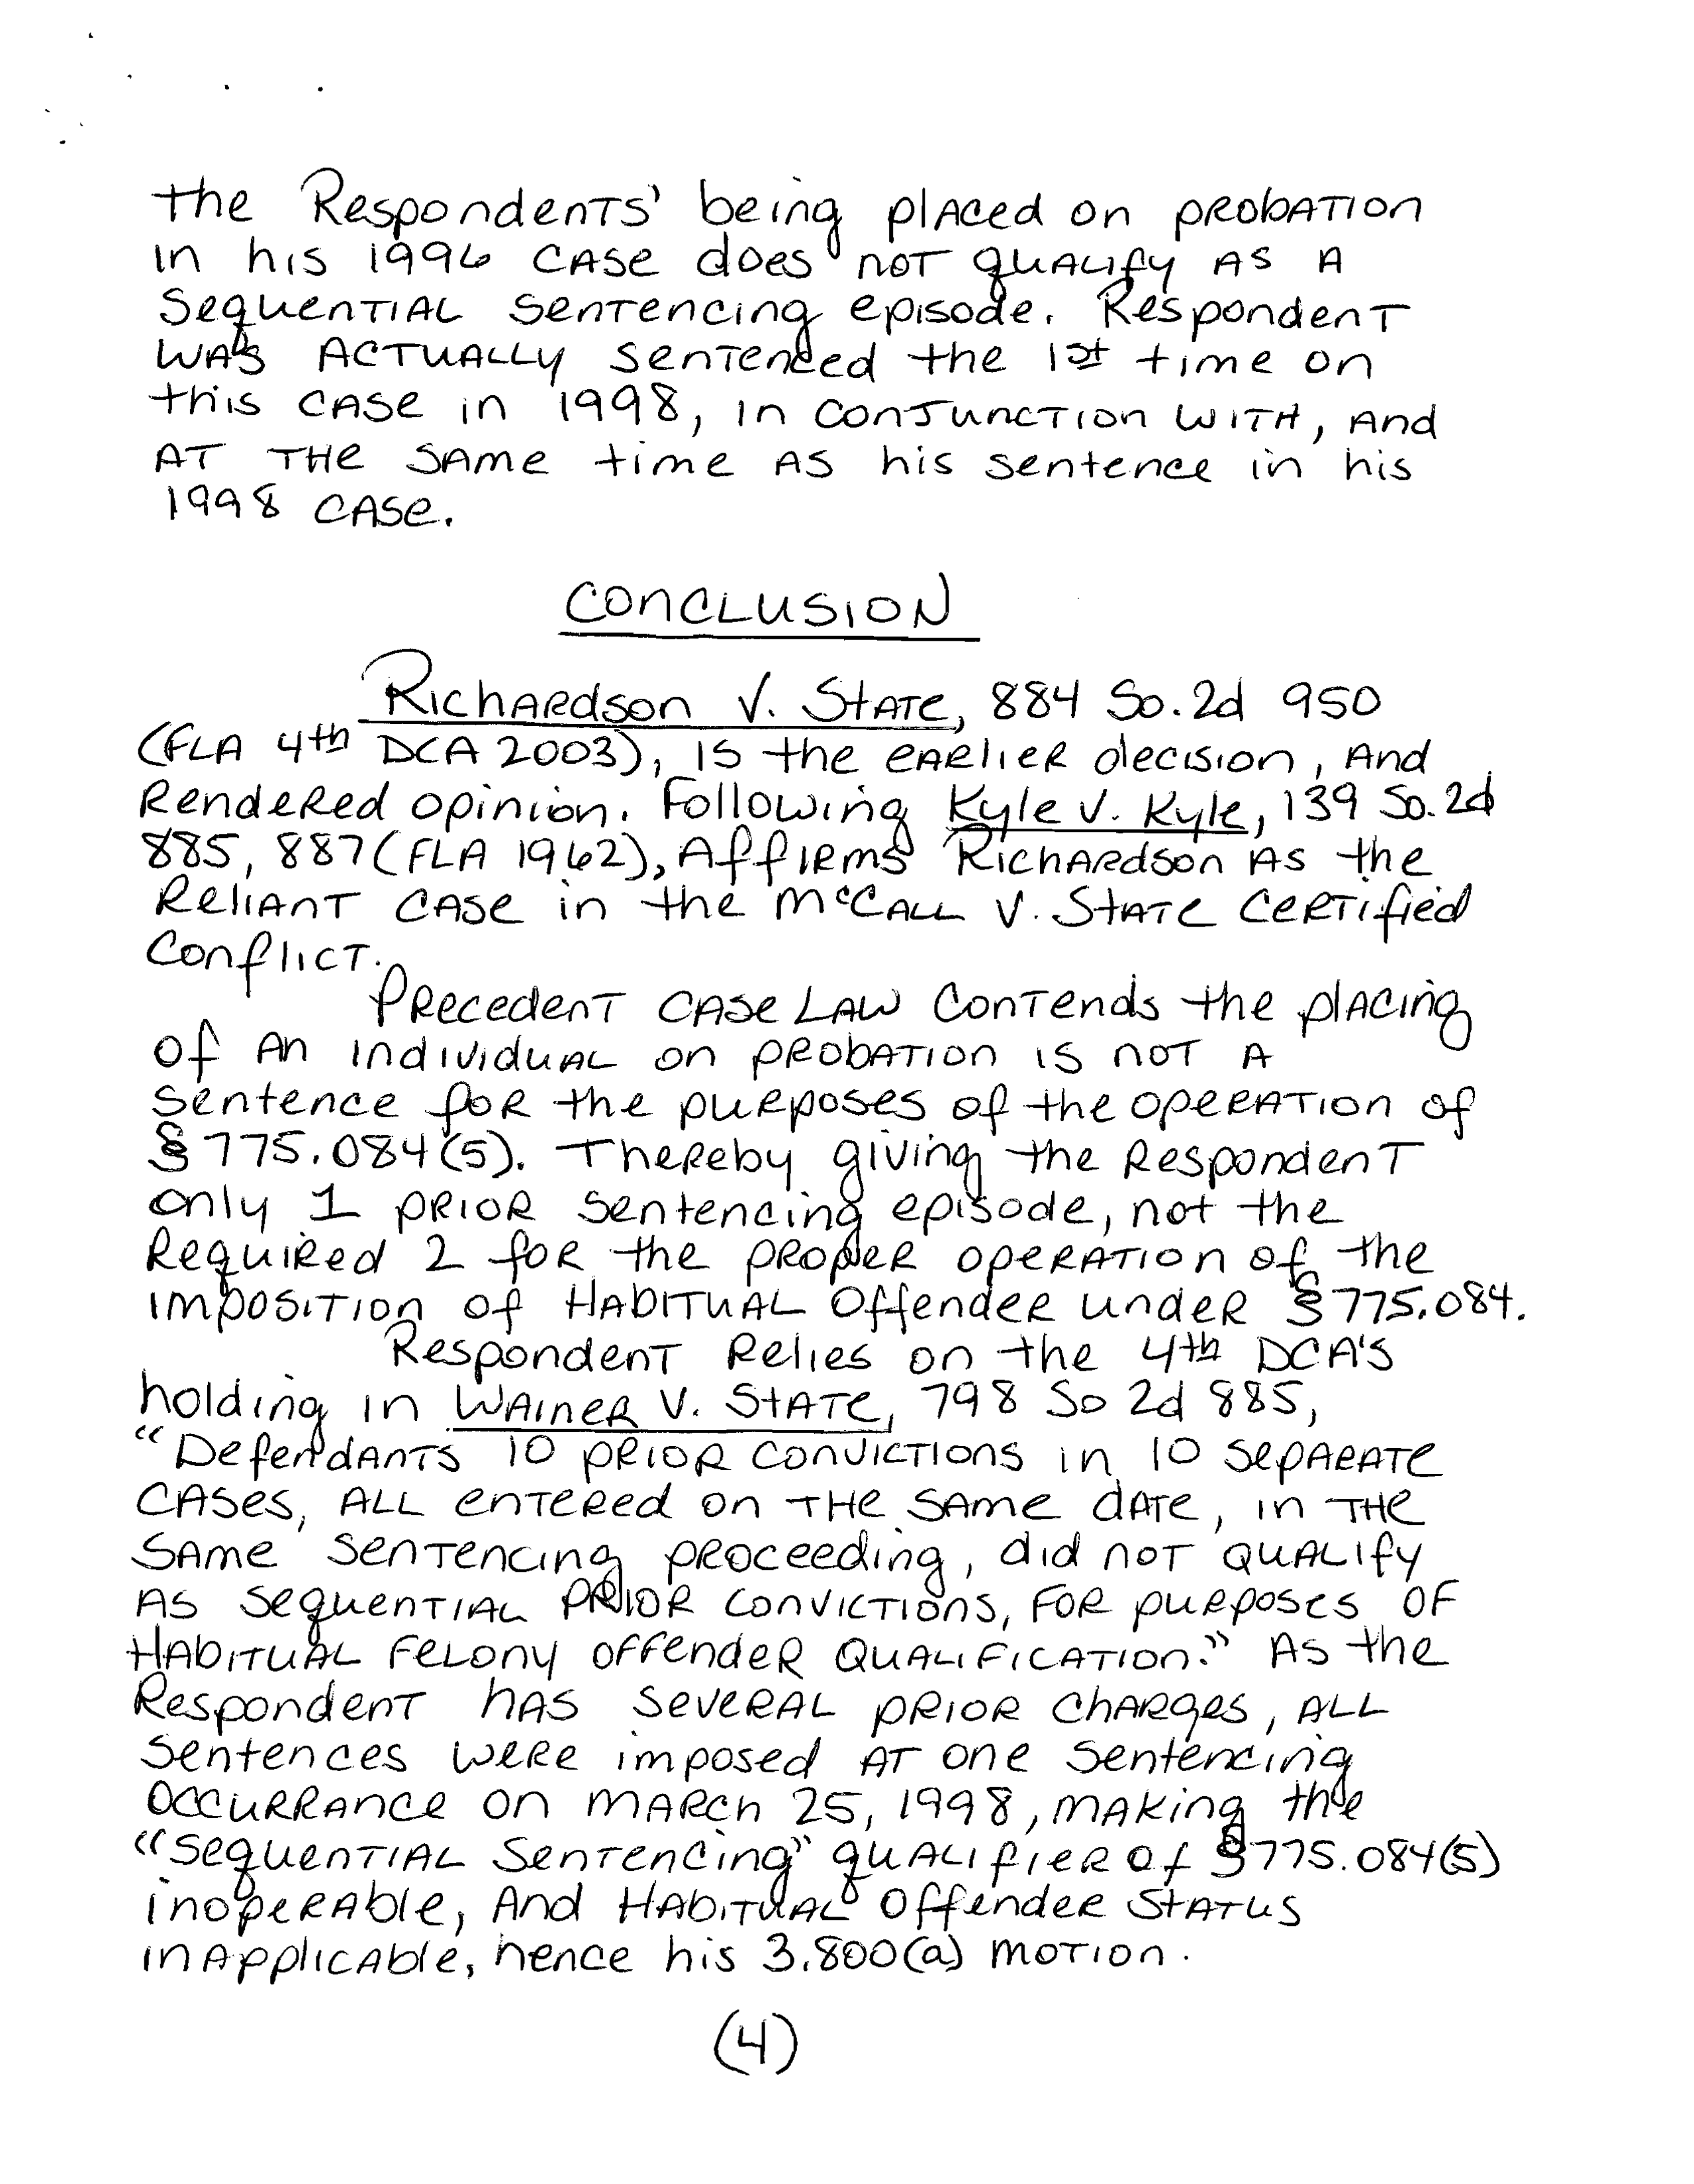 the Respondents' being placed on probation
in his 1996 case does not qualify as a
sequential sentencing episode. Respondent
was actually sentenced the 1st time on
this case in 1998, in conjunction with, and
at the same time as his sentence in his
1998 case.
CONCLUSION
Richardson v. State, 884 So.2d 950
(FLA 4th DCA 2003), is the earlier decision, and
rendered opinion. Following Kyle v. Kyle, 139 So.2d
885, 887 (FLA 1962), Affirms Richardson as the
reliant case in the McCall v. State certified
conflict.
Precedent case law contends the placing
of an individual on probation is not a
sentence for the purposes of the operation of
§ 775.084(5). Thereby giving the Respondent
only 1 prior sentencing episode, not the
required 2 for the proper operation of the
imposition of Habitual Offender under § 775.084.
Respondent relies on the 4th DCA's
holding in Wainer v. State, 798 So 2d 885,
"Defendants 10 prior convictions in 10 separate
cases, all entered on the same date, in the
same sentencing proceeding, did not qualify
as sequential prior convictions, for purposes of
Habitual Felony Offender Qualification." As the
Respondent has several prior charges, all
sentences were imposed at one sentencing
occurrance on March 25, 1998, making the
"sequential sentencing" qualifier of § 775.084(5)
inoperable, and Habitual Offender status
inapplicable, hence his 3.800(a) motion.
(4)